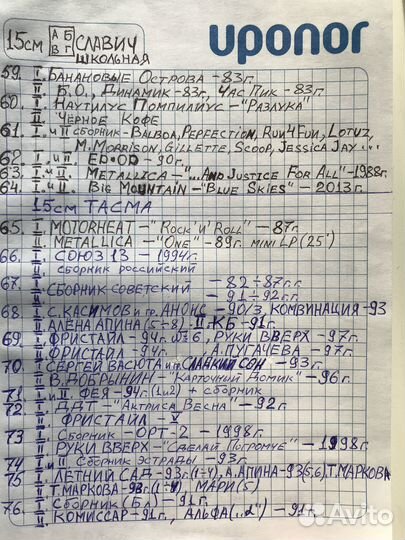 15см АБ ВГ СЛАВИЧ ШКОЛЬНАЯ
uponor
59. I. Банановые Острова - 83г.
II. Б.О., Динамик - 83г, Час Пик - 83г.
60. I. Наутилус Помпилиус - "Разлука"
II Чёрное Кофе
61. I. и II сборник - Balboa, Perfection, Run4Fun, Lotuz,
M.Morrison, Gillette, Scoop, Jessica Jay...
62. I. и II. ЕР•ОР - 90г.
63. I. и II. Metallica - "...And Justice For All" - 1988г.
64. I. и II. Big Mountain - "Blue Skies" - 2013г.
15см ТАСМА
65. I. MOTORHEAT - "Rock'n'Roll" - 87г.
II. METALLICA - "One" - 89г. mini LP (25')
66. I. СОЮЗ 13 - 1994г.
II сборник российский
67. I. сборник советский - 82÷87г.г.
II - 91÷92г.г.
68 I. С.Касимов и гр. Анонс - 90/3, Комбинация - 93
II Алёна Апина (5÷8). II. КБ - 91г.
69. I. Фристайл - 94г. №6, Руки Вверх - 97г.
II Фристайл - 94г. А.Пугачева - 97г.
70. I. Сергей Васюта и гр. Сладкий Сон - 93г.
II В.Добрынин - "Карточный Домик" - 96г.
71. I и II. Фея - 94г. (1и2) + сборник
72. I. ДДТ - "Актриса Весна" - 92г.
II Фристайл - V
73 I. Сборник - ОРТ-2 - 1998г.
II Руки Вверх - "Сделай Погромче" - 1998г.
74 I и II Сборник Эстрады - 93г.
75 I. Летний Сад - 93г. (1÷4), А.Апина - 93 (5,6), Т.Маркова
II Т.Маркова - 93г. (1÷4), Мари (5)
76. I. Сборник (БА) - 91г.
II Комиссар - 91г., Альфа (..2") - 91г.
Avito